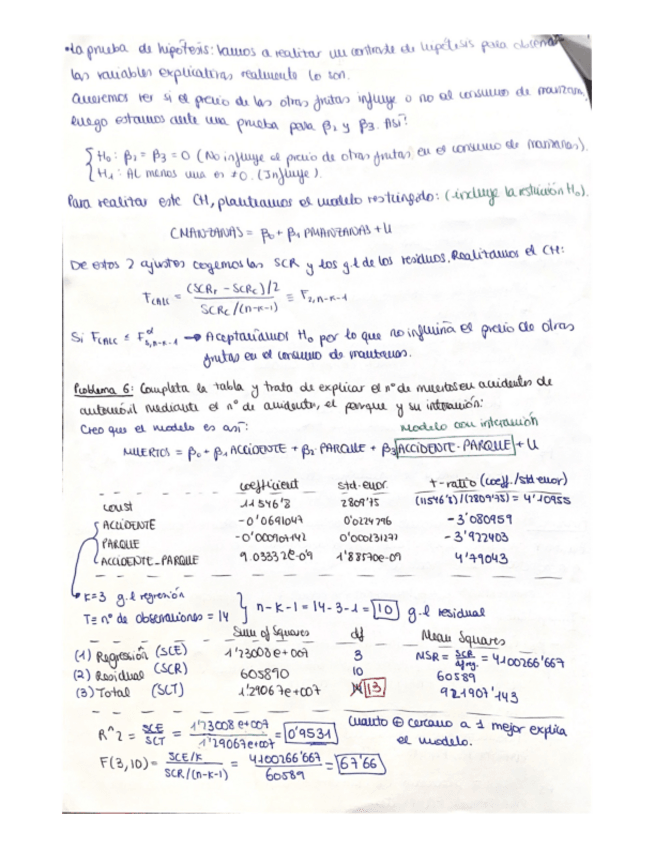 •La prueba de hipótesis: Vamos a realizar un contraste de hipótesis para observar
las variables explicativas realmente lo son.
Queremos ver si el precio de las otras frutas influye o no al consumo de manzanas,
luego estamos ante una prueba para β₂ y β3. Así:
{ H₀: β₂ = β3 = 0 (No influye el precio de otras frutas en el consumo de manzanas).
H₁: AL menos una es ≠0. (Influye).
Para realizar este CH, planteamos el modelo restringido: (-incluye la restricción H₀).
CMANZANAS = β₀ + β₁ PMANZANAS + U
De estos 2 ajustes cogemos las SCR y los g.l de los residuos. Realizamos el CH:
F_CALC = (SCRr - SCRc)/2 / SCRc/(n-k-1) ≡ F₂,n-k-1
Si F_CALC ≤ F^α_2,n-k-1 → Aceptaríamos H₀ por lo que no influiría el precio de otras
frutas en el consumo de manzanas.
Problema 6: Completa la tabla y trata de explicar el nº de muertos en accidentes de
automóvil mediante el nº de accidentes, el parque y su interacción:
Creo que el modelo es así: modelo con interacción
MUERTOS = β₀ + β₁ ACCIDENTE + β₂ PARQUE + β₃ ACCIDENTE·PARQUE + U
coefficient std.error t-ratio (coeff./std error)
const 11546'8 2809'75 (11546'8)/(2809'75) = 4'10955
ACCIDENTE -0'0691047 0'0224296 -3'080959
PARQUE 0'000231277 -3'922403
ACCIDENTE_PARQUE 9.03332e-09 1'88570e-09 4'79043
k=3 g.l regresión
T= nº de observaciones = 14 } n-k-1 = 14-3-1 = 10 g.l residual
Sum of Squares df Mean Squares
(1) Regresión (SCE) 1'23008e+007 3 MSR = = 4100266'667
(2) Residual (SCR) 605890 10 60589
(3) Total (SCT) 1'29067e+007 13 921907'143
R^2 = SCE/SCT = 1'23008e+007 / 1'29067e+007 = 0'9531 Cuanto ⊕ cercano a 1 mejor explica
el modelo.
F(3,10) = SCE/k / SCR/(n-k-1) = 4100266'667 / 60589 = 67'66